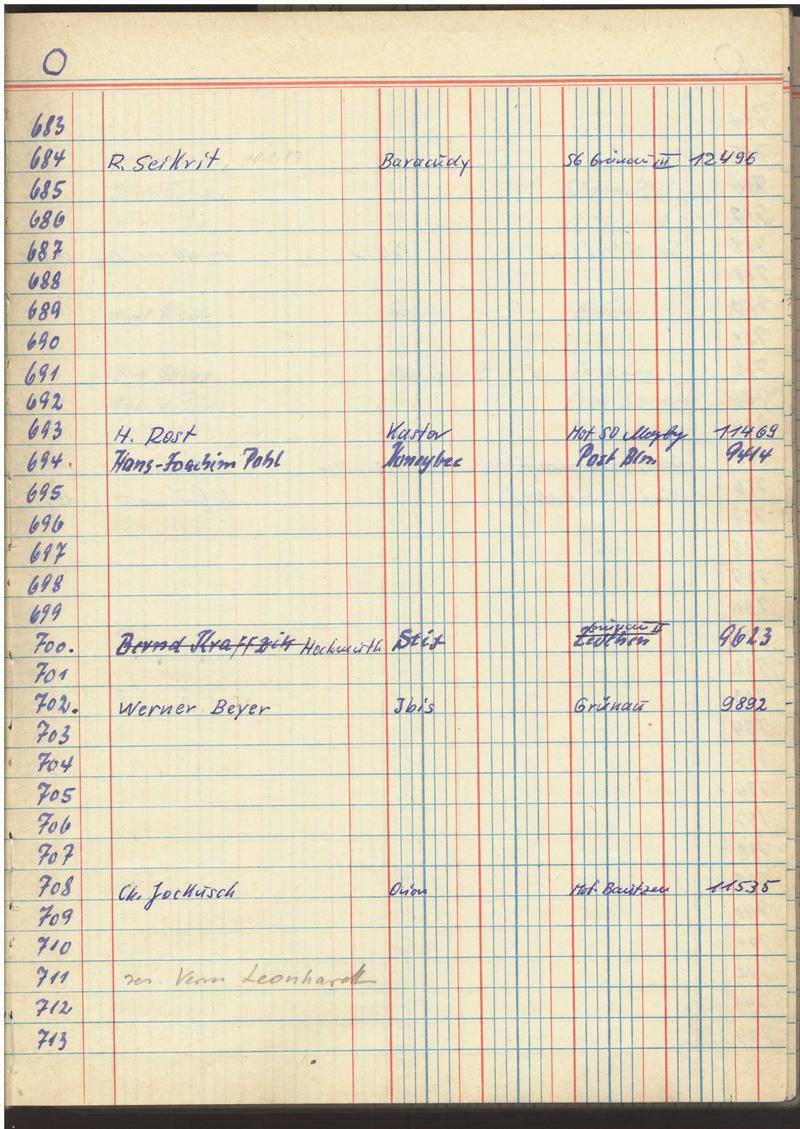 O
683
684 R. Seikrit Baracudy SG Grünau III 12496
685
686
687
688
689
690
691
692
693 H. Rost Kastor Mot SO 11469
694. Hans-Joachim Pohl Honeybee Post Bln 9414
695
696
697
698
699
Grünau II
700. Bernd Kraffzik Hochmuth Stix Zeuthen 9623
701
702. Werner Beyer Ibis Grünau 9892
703
704
705
706
707
708 Ch. Jockusch Orion Mot. Bautzen 11535
709
710
711 Leonhardt
712
713